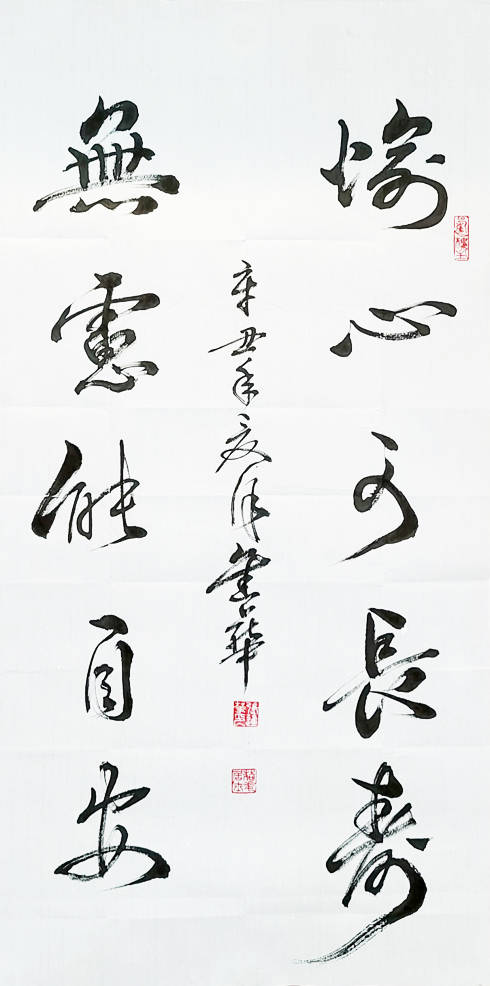 愉心可長壽
無慮能自安
辛丑年夏月建華